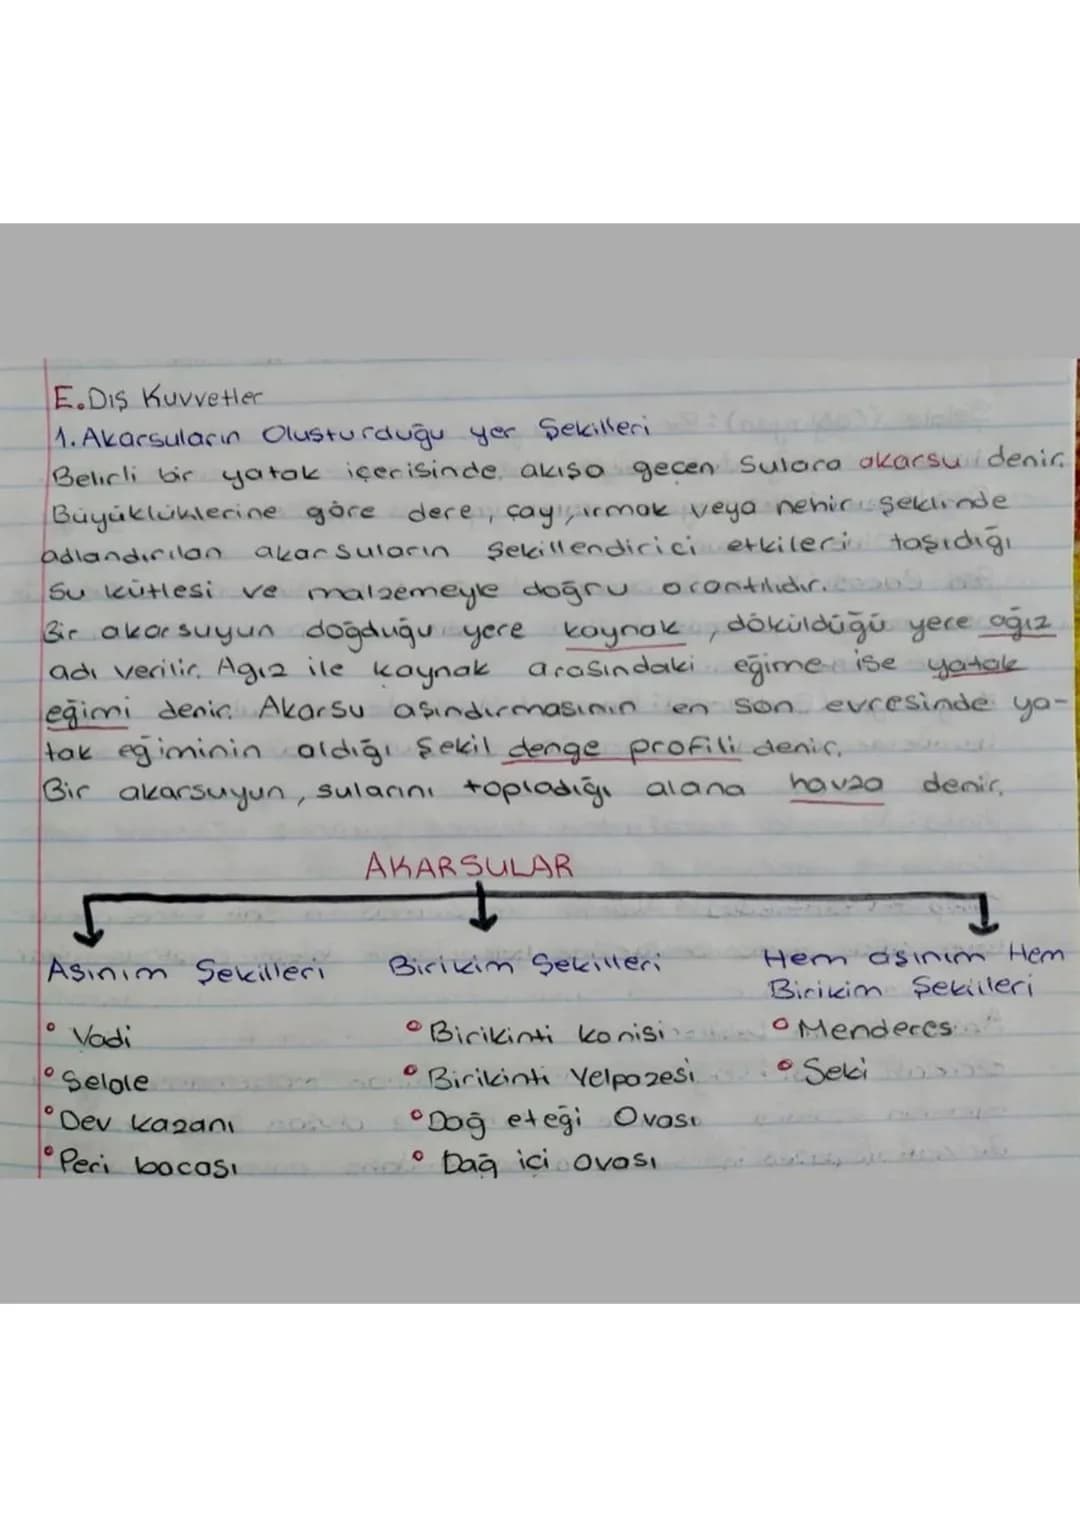 E.Dış Kuvvetler
1.Akarsuların Oluşturduğu yer Şekilleri
Belirli bir yatak içerisinde akışa geçen Sulara akarsu denir.
Büyüklüklerine göre dere, çay, ırmak veya nehir şeklinde
adlandırılan akarsuların şekillendirici etkileri taşıdığı
su kütlesi ve malzemeyle doğru orantılıdır.
Bir akarsuyun doğduğu yere kaynak, döküldüğü yere ağız
adı verilir. Agız ile kaynak arasındaki eğime ise yatak
eğimi denir. Akarsu aşındırmasının en son evresinde ya-
tak eğiminin aldığı şekil denge profili denir.
Bir akarsuyun, sularını topladığı alana havza denir.
AKARSULAR
Aşınım Şekilleri
Birikim Şekilleri
Hem aşınım Hem
Birikim Şekilleri
° Vadi
° Şelale
° Dev kazanı
° Peri bacası
° Birikinti konisi
° Birikinti Yelpazesi
° Dağ eteği Ovası
° Dağ içi ovası
° Menderes
° Seki